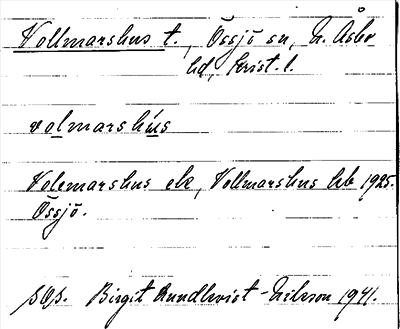 Vollmarshus t., Össjö sn, N. Åsbo
hd, Krist. l.
volmarshús
Volemarshus ek, Vollmarshus hb 1925.
Össjö.
sOp. Birgit Rundkvist-Nilsson 1941.